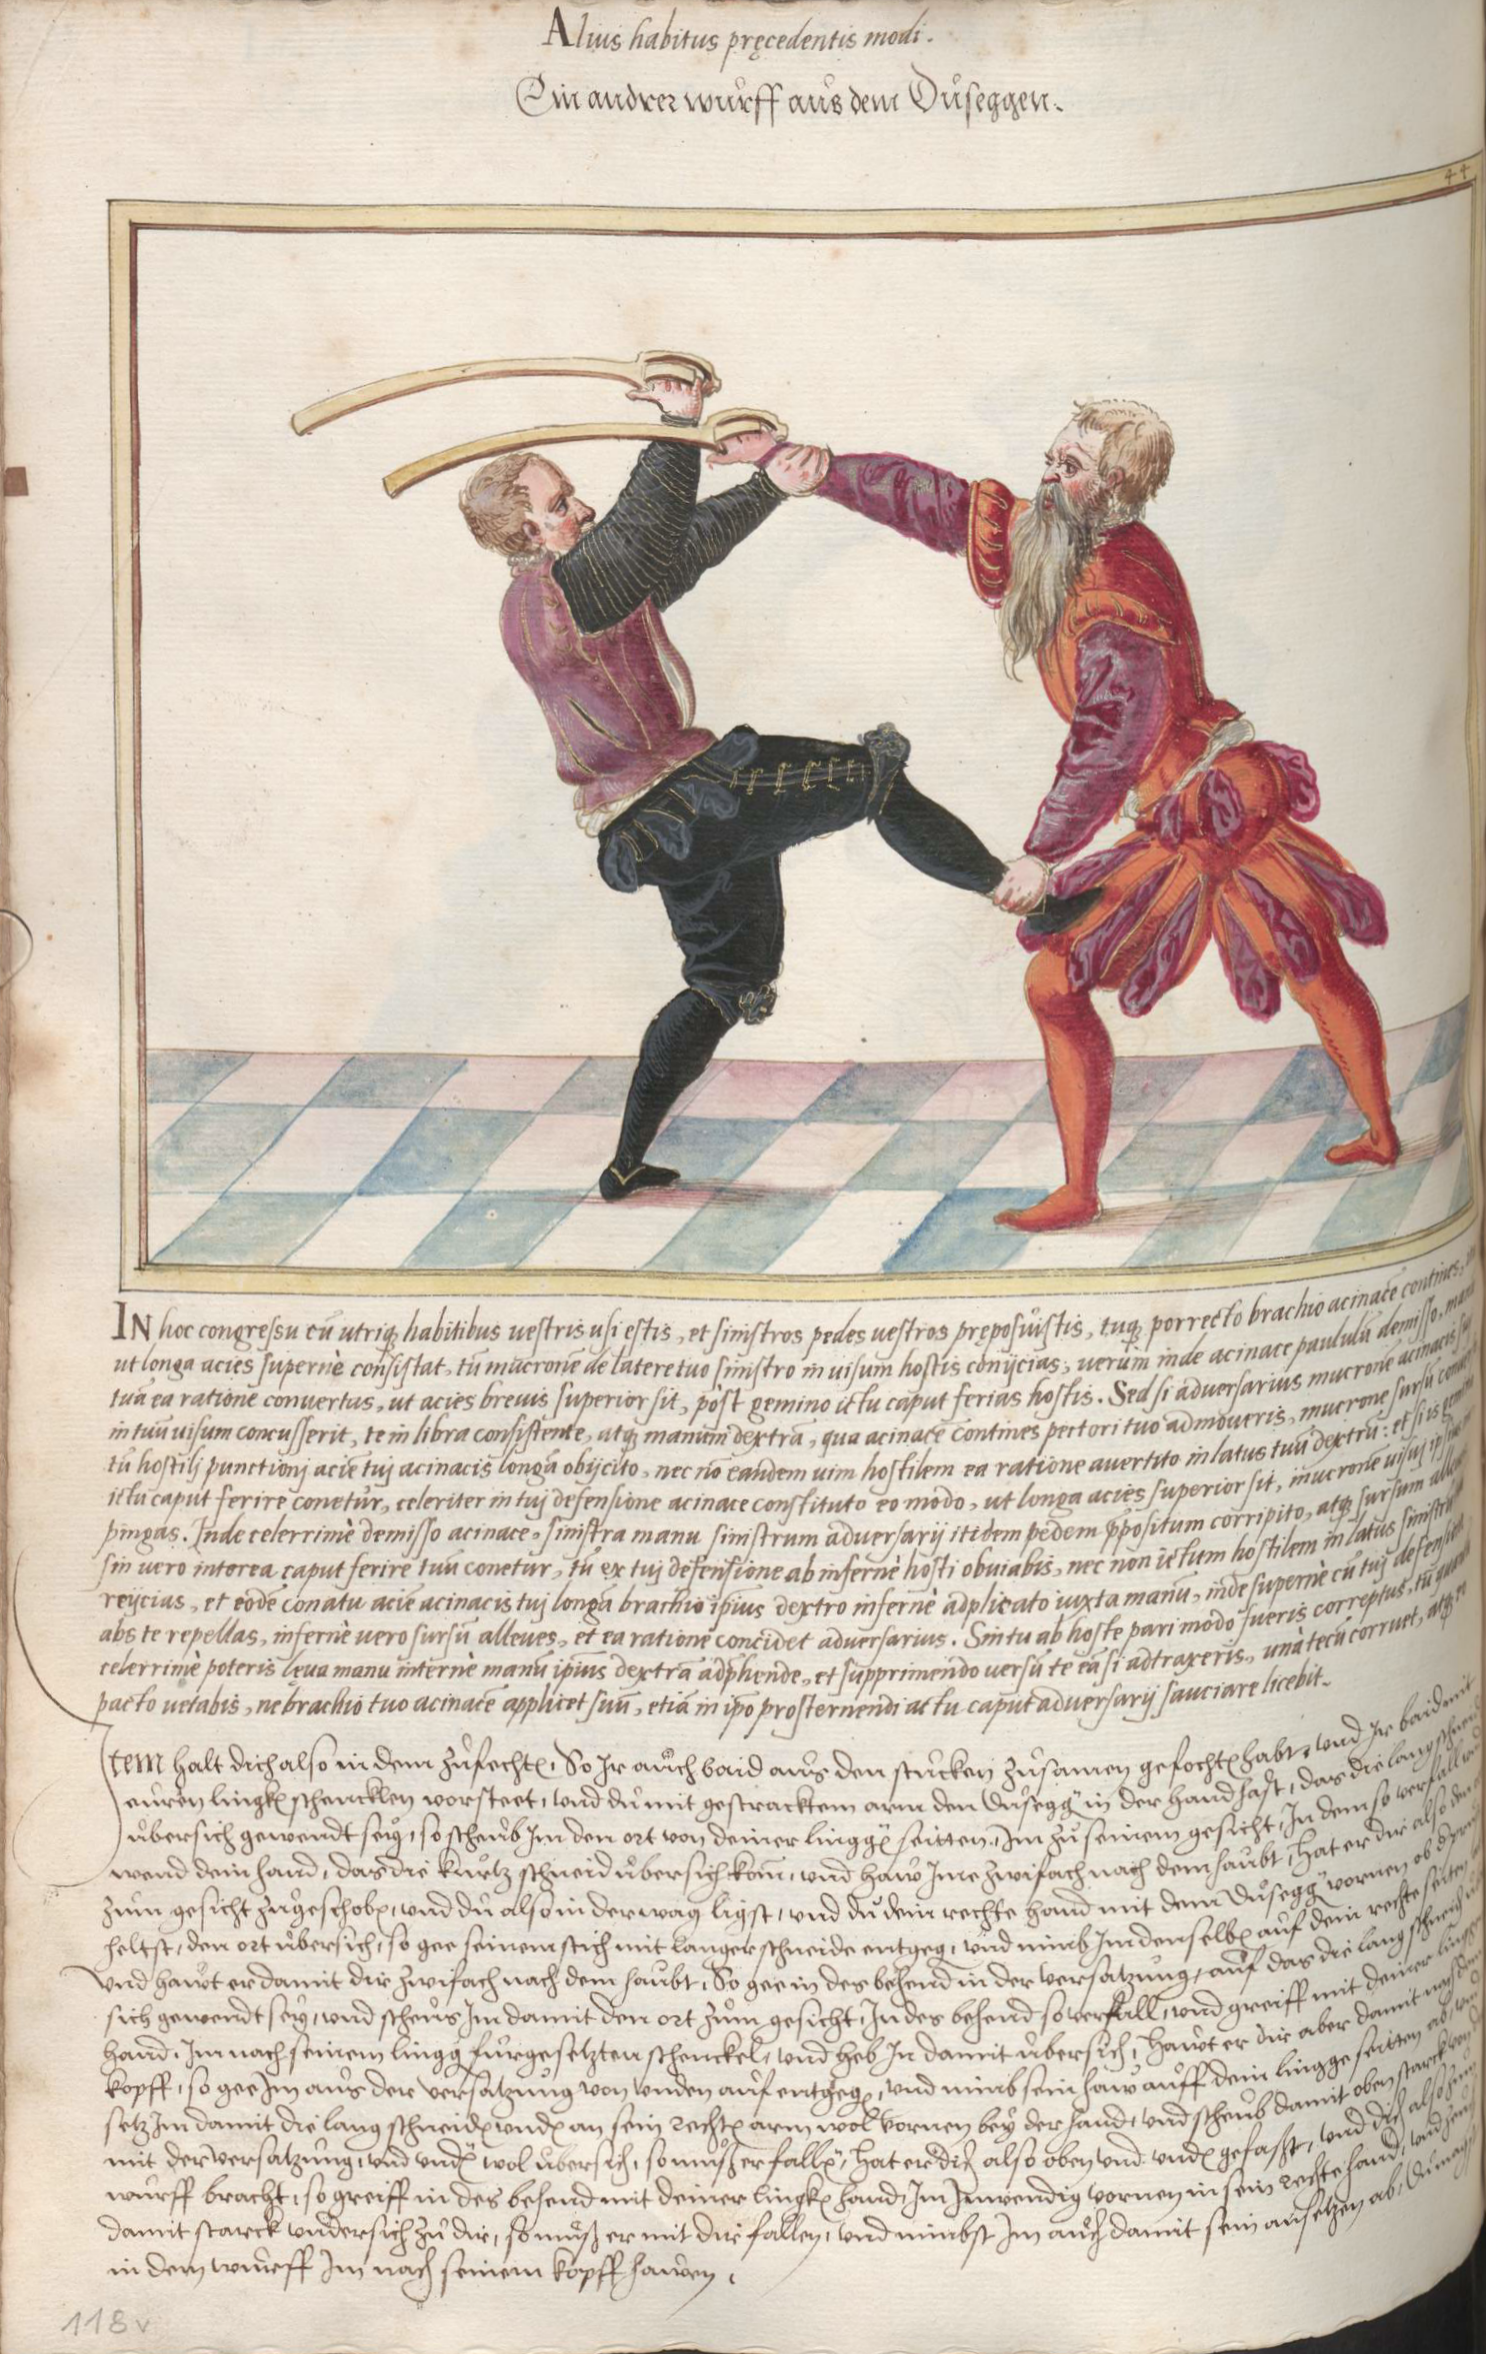 Alius habitus pręcedentis modi.
Ein andrer wurff aus dem Duseggen.
44
IN hoc congressu cū utriq; habitibus uestris usi estis, et sinistros pedes uestros pręposuistis, tuq; porrecto brachio acinacē contines,
ut longa acies supernè consistat, tū mucronē de latere tuo sinistro in uisum hostis conijcias, uerùm inde acinace paululū demisso, manū
tuā ea ratione conuertas, ut acies breuis superior sit, pòst gemino ictu caput ferias hostis. Sed si aduersarius mucronē acinacis sui
in tuū uisum concusserit, te in libra consistente, atq; manum dextrā, qua acinacē contines pectori tuo admoueris, mucrone sursū
tū hostilj punctionj aciē tuj acinacis longā obijcito, nec nō eandem uim hostilem ea ratione auertito in latus tuū dextrū: et si is gemino
ictu caput ferire conetur, celeriter in tuj defensione acinace constituto eo modo, ut longa acies superior sit, mucronē uisuj
pingas. Inde celerrimè demisso acinace, sinistra manu sinistrum aduersarij itidem pedem ꝓpositum corripito, atq; sursum
sin uero interea caput ferire tuū conetur, tū ex tuj defensione ab infernè hosti obuiabis, nec non ictum hostilem in latus sinistrū
reijcias, et eodē conatu aciē acinacis tuj longā brachio ipsius dextro infernè adplicato iuxta manū, inde supernè cū tuj defensione
abs te repellas, infernè uero sursū alleues, et ea ratione concidet aduersarius. Sin tu ab hoste pari modo fueris correptus, tū
celerrimè poteris lęua manu internè manū ipsius dextrā adphende, et supprimendo uersū te eā si adtraxeris, unà tecū corruet, atq;
pacto uetabis, ne brachio tuo acinacē applicet suū, etiā in ipo prosternendi actu caput aduersarij sauciare licebit.
Item halt dich also in dem zufechtn, So Ir auch baid aus den stucken zusamen gefochtn habt, vnd Ir baid mit
euren lingkn schencklen vorsteet, vnd du mit gestracktem arm den Dusegg in der hand hast, das die lang schneid
vbersich gewendt sey, so scheub Im den ort von deiner linggen seitten, Im zu seinem gesicht, In dem so verfall
wend dein hand, das die kurtz schneid vbersich kom, vnd haw Ime zwifach nach dem haubt, Hat er dir also den
zum gesicht zugeschobn, vnd du also in der wag ligst, vnd du dein rechte hand mit dem Dusegg vornen ob
heltst, den ort vbersich, so gee seinem stich mit langer schneide entgeg, vnd nimb Im denselbn auf dein rechte seiten
vnd hawt er damit dir zwifach nach dem haubt, So gee in des behend in der versatzung, auf das die lang schneid
sich gewendt sey, vnd scheus Im damit den ort zum gesicht, In des behend so verfall, vnd greiff mit deiner lingken
hand, Im nach seinem lingg furgesetzten schenckel, vnd heb In damit vbersich, Hawt er dir aber damit nach dem
kopff, so gee Im aus der versatzung von vnden auf entgegn, vnd nimb sein haw auff dein lingge seitten ab,
setz Im damit die lang schneid vnden an sein rechtn arm wol vornen bey der hand, vnd scheub damit oben starck
mit der versatzung, vnd vnden wol vbersich, so muß er fallen, Hat er dich also oben vnd vnden gefasst, vnd dich also zum
wurff bracht, so greiff in des behend mit deiner lingkn hand, Im Inwendig vornen in sein rechte hand, vnd
damit starck vndersich zu dir, so muß er mit dir fallen, vnd nimbst Im auch damit sein ansetzen ab, Du magst
in dem wurff Im nach seinem kopff hawen.
118v